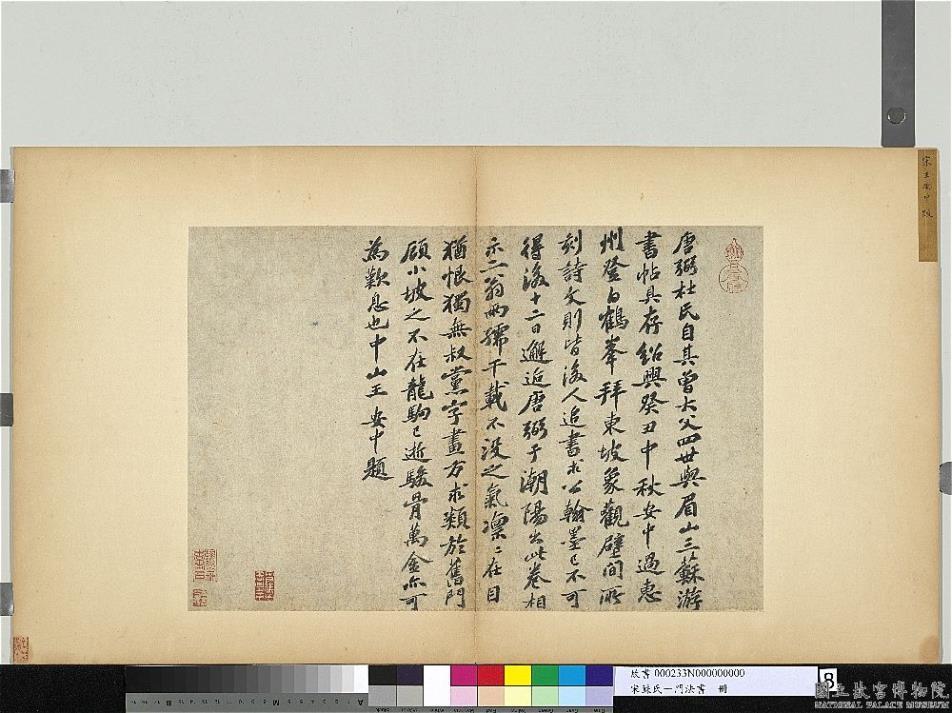 唐弼杜氏自其曾大父四世與眉山三蘇游
書帖具存紹興癸丑中秋安中過惠
州登白鶴峯拜東坡象觀壁間所
刻詩文則皆後人追書求公翰墨已不可
得後十二日邂逅唐弼于潮陽出此卷相
示二翁兩孺千載不沒之氣凜〻在目
猶恨獨無叔黨字畫方求類於舊門
顧小坡之不在龍駒已逝駿骨萬金亦可
為歎息也中山王安中題
宋王安中跋
故書 000233N000000000
宋蘇氏一門法書 冊
8
國立故宮博物院
NATIONAL PALACE MUSEUM